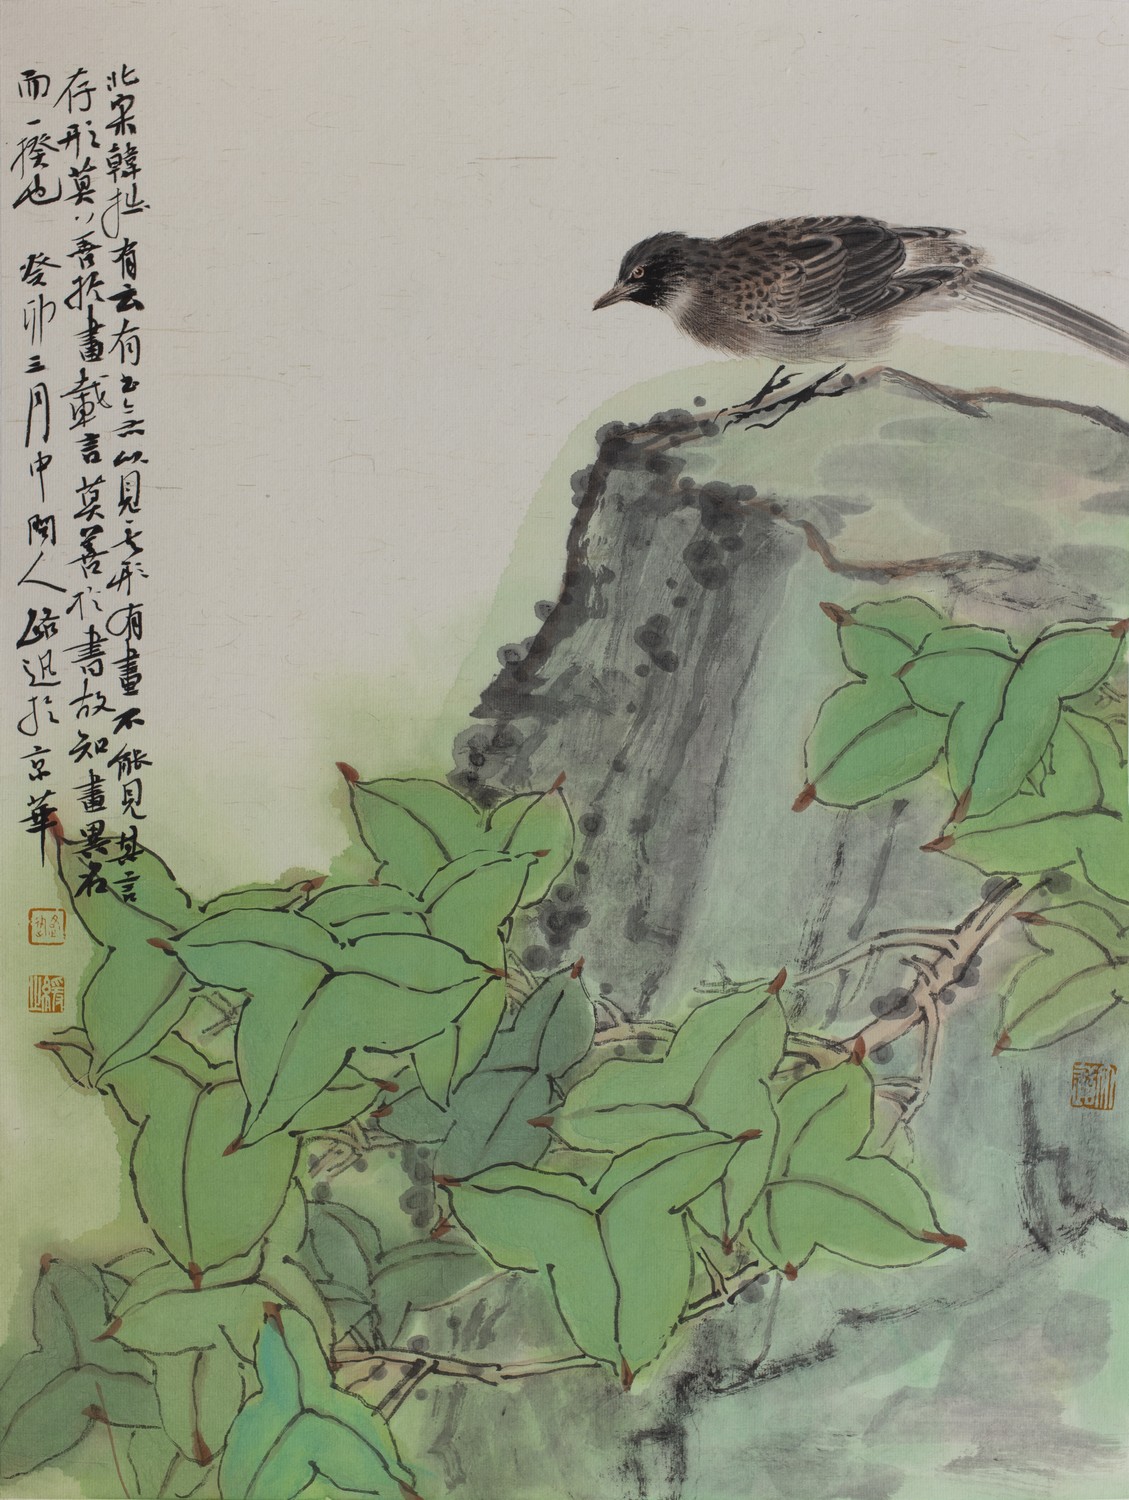 北宋韓拙有云有書無以見其形有畫不能見其言
存形莫善於畫載言莫善於書故知畫異名
而一揆也 癸卯三月中閑人路迟於京華